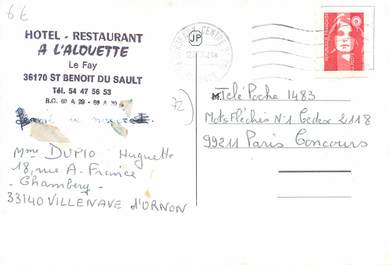 6€
HOTEL - RESTAURANT
A L'ALOUETTE
Le Fay
36170 ST BENOIT DU SAULT
Tél. 54 47 56 53
JP
72
Télé Poche 1483
Mots Fléchés N°1 Cedex 2118
99211 Paris Concours
Mme DUPIO Huguette
18, rue A. France
- Chambery -
33140 VILLENAVE d'ORNON